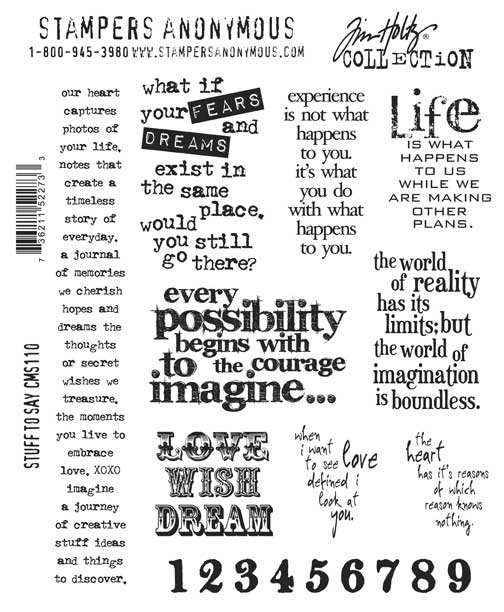 STAMPERS ANONYMOUS
1-800-945-3980 WWW.STAMPERSANONYMOUS.COM
Tim Holtz®
COLLECTION
7 36211 52273 3
STUFF TO SAY CMS110
our heart
captures
photos of
your life,
notes that
create a
timeless
story of
everyday.
a journal
of memories
we cherish
hopes and
dreams the
thoughts
or secret
wishes we
treasure.
the moments
you live to
embrace
love, XOXO
imagine
a journey
of creative
stuff ideas
and things
to discover.
what if
your FEARS
and
DREAMS
exist in
the same
place,
would
you still
go there?
experience
is not what
happens
to you.
it's what
you do
with what
happens
to you.
Life
IS WHAT
HAPPENS
TO US
WHILE WE
ARE MAKING
OTHER
PLANS.
every
possibility
begins with
.to the courage
imagine...
the world
of reality
has its
limits; but
the world of
imagination
is boundless.
LOVE
WISH
DREAM
when
i want
to see love
defined i
look at
you.
the
heart
has it's reasons
of which
reason knows
nothing.
1 2 3 4 5 6 7 8 9